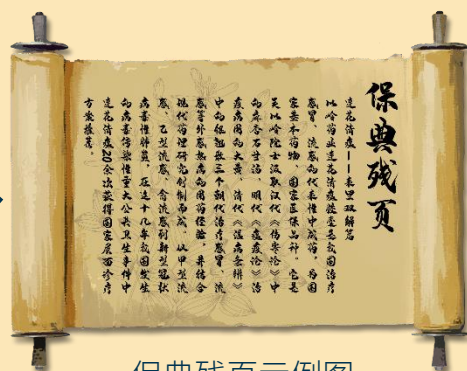 保典残页
连花清瘟——表里双解篇
以岭药业连花清瘟胶囊是我国治疗
感冒、流感的代表性中成药，为国
家基本药物、国家医保品种。它是
吴以岭院士汲取汉代《伤寒论》中
的麻杏石甘汤、明代《瘟疫论》治
疫病用的大黄、清代《温病条辨》
中的银翘散三个朝代治疗感冒、流
感等外感热病的用药经验，并结合
现代药理研究创制而成，从甲型流
感、乙型流感、禽流感到新型冠状
病毒性肺炎，在近十几年我国发生
的病毒传染性重大公共卫生事件中
连花清瘟20余次获得国家层面诊疗
方案推荐。
保典残页示例图